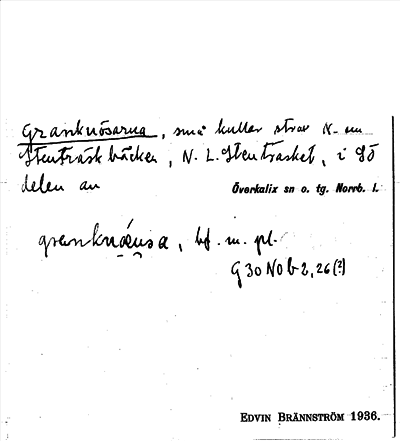 Granknösarna, små kullar strax N. om
Stenträskbäcken, N. L. Stenträsket, i SÖ
delen av Överkalix sn o. tg. Norrb. l.
granknǿusa, bf. m. pl.
G 30 NO b 2, 26 (?)
EDVIN BRÄNNSTRÖM 1936.